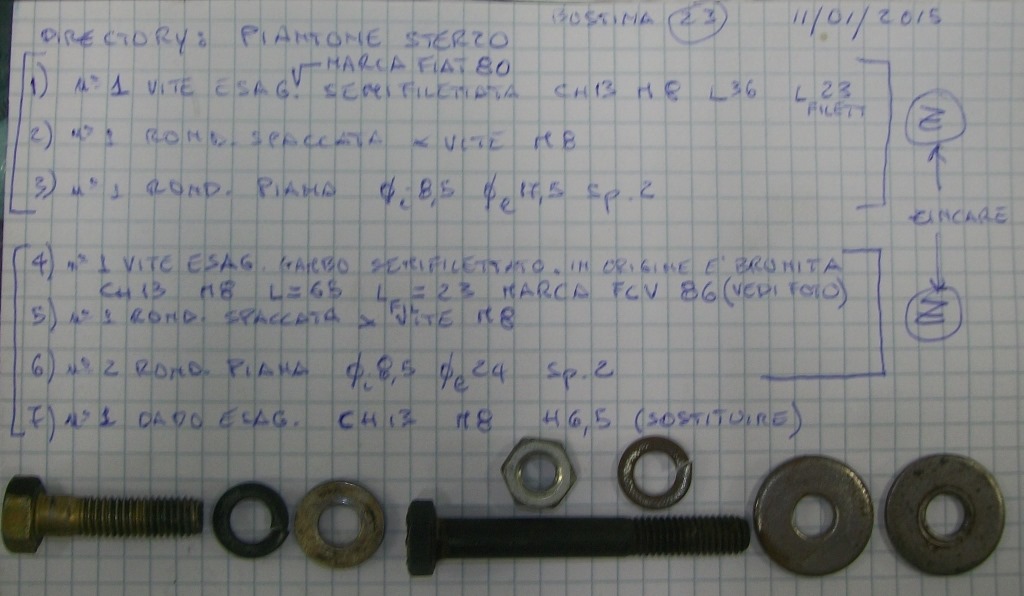 BUSTINA 23 11/01/2015
DIRECTORY: PIANTONE STERZO
MARCA FIAT 80
1) N° 1 VITE ESAG. SEMIFILETTATA CH13 M8 L36 L 23
FILETT
2) N° 1 ROND. SPACCATA x VITE M8
3) N° 1 ROND. PIANA ϕi 8,5 ϕe 17,5 Sp. 2
ZINCARE
4) N° 1 VITE ESAG. GAMBO SEMIFILETTATO. IN ORIGINE E' BRUNITA
CH13 M8 L=65 L =23 MARCA FCV 86 (VEDI FOTO)
5) N° 1 ROND. SPACCATA x VITE M8
6) N° 2 ROND. PIANA ϕi 8,5 ϕe 24 Sp. 2
7) N° 1 DADO ESAG. CH13 M8 H6,5 (SOSTITUIRE)